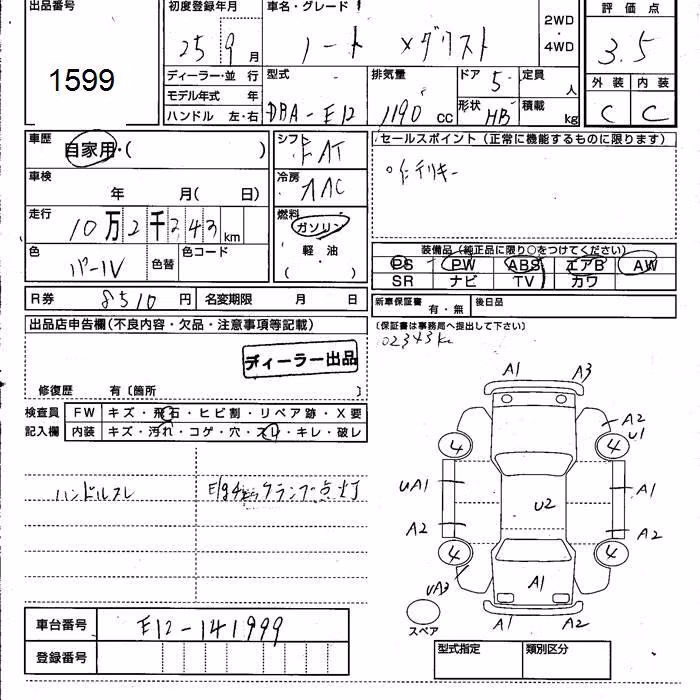 出品番号 初度登録年月 車名・グレード 評価点
1599 25 9月 ノート メダリスト 2WD・4WD 3.5
ディーラー・並行 型式 排気量 ドア 5 定員 人 外装 内装
モデル年式 年
ハンドル 左・右 DBA-E12 1190cc 形状 HB 積載 kg C C
車歴 自家用・( ) シフト FAT セールスポイント (正常に機能するものに限ります)
車検 年 月( 日) 冷房 AAC
走行 10万2千343km 燃料 ガソリン 軽・油 ( )
色 パールV 色替 色コード 装備品 (純正品に限り○をつけてください)
PS PW ABS エアB AW
SR ナビ TV カワ
R券 8510円 名変期限 月 日 新車保証書 有・無 後日品
出品店申告欄(不良内容・欠品・注意事項等記載) (保証書は事務局へ提出して下さい)
02343km
ディーラー出品
修復歴 有〔箇所 〕
検査員 FW キズ・飛石・ヒビ割・リペア跡・X要
記入欄 内装 キズ・汚れ・コゲ・穴・スレ・キレ・破レ
ハンドルスレ ランプ点灯
A1 A3
4 4 A2 U1
UA1 A1
U2
A2 A2
4 4
UA3 A1
スペア A1 A2
車台番号 E12-141999
登録番号 型式指定 類別区分